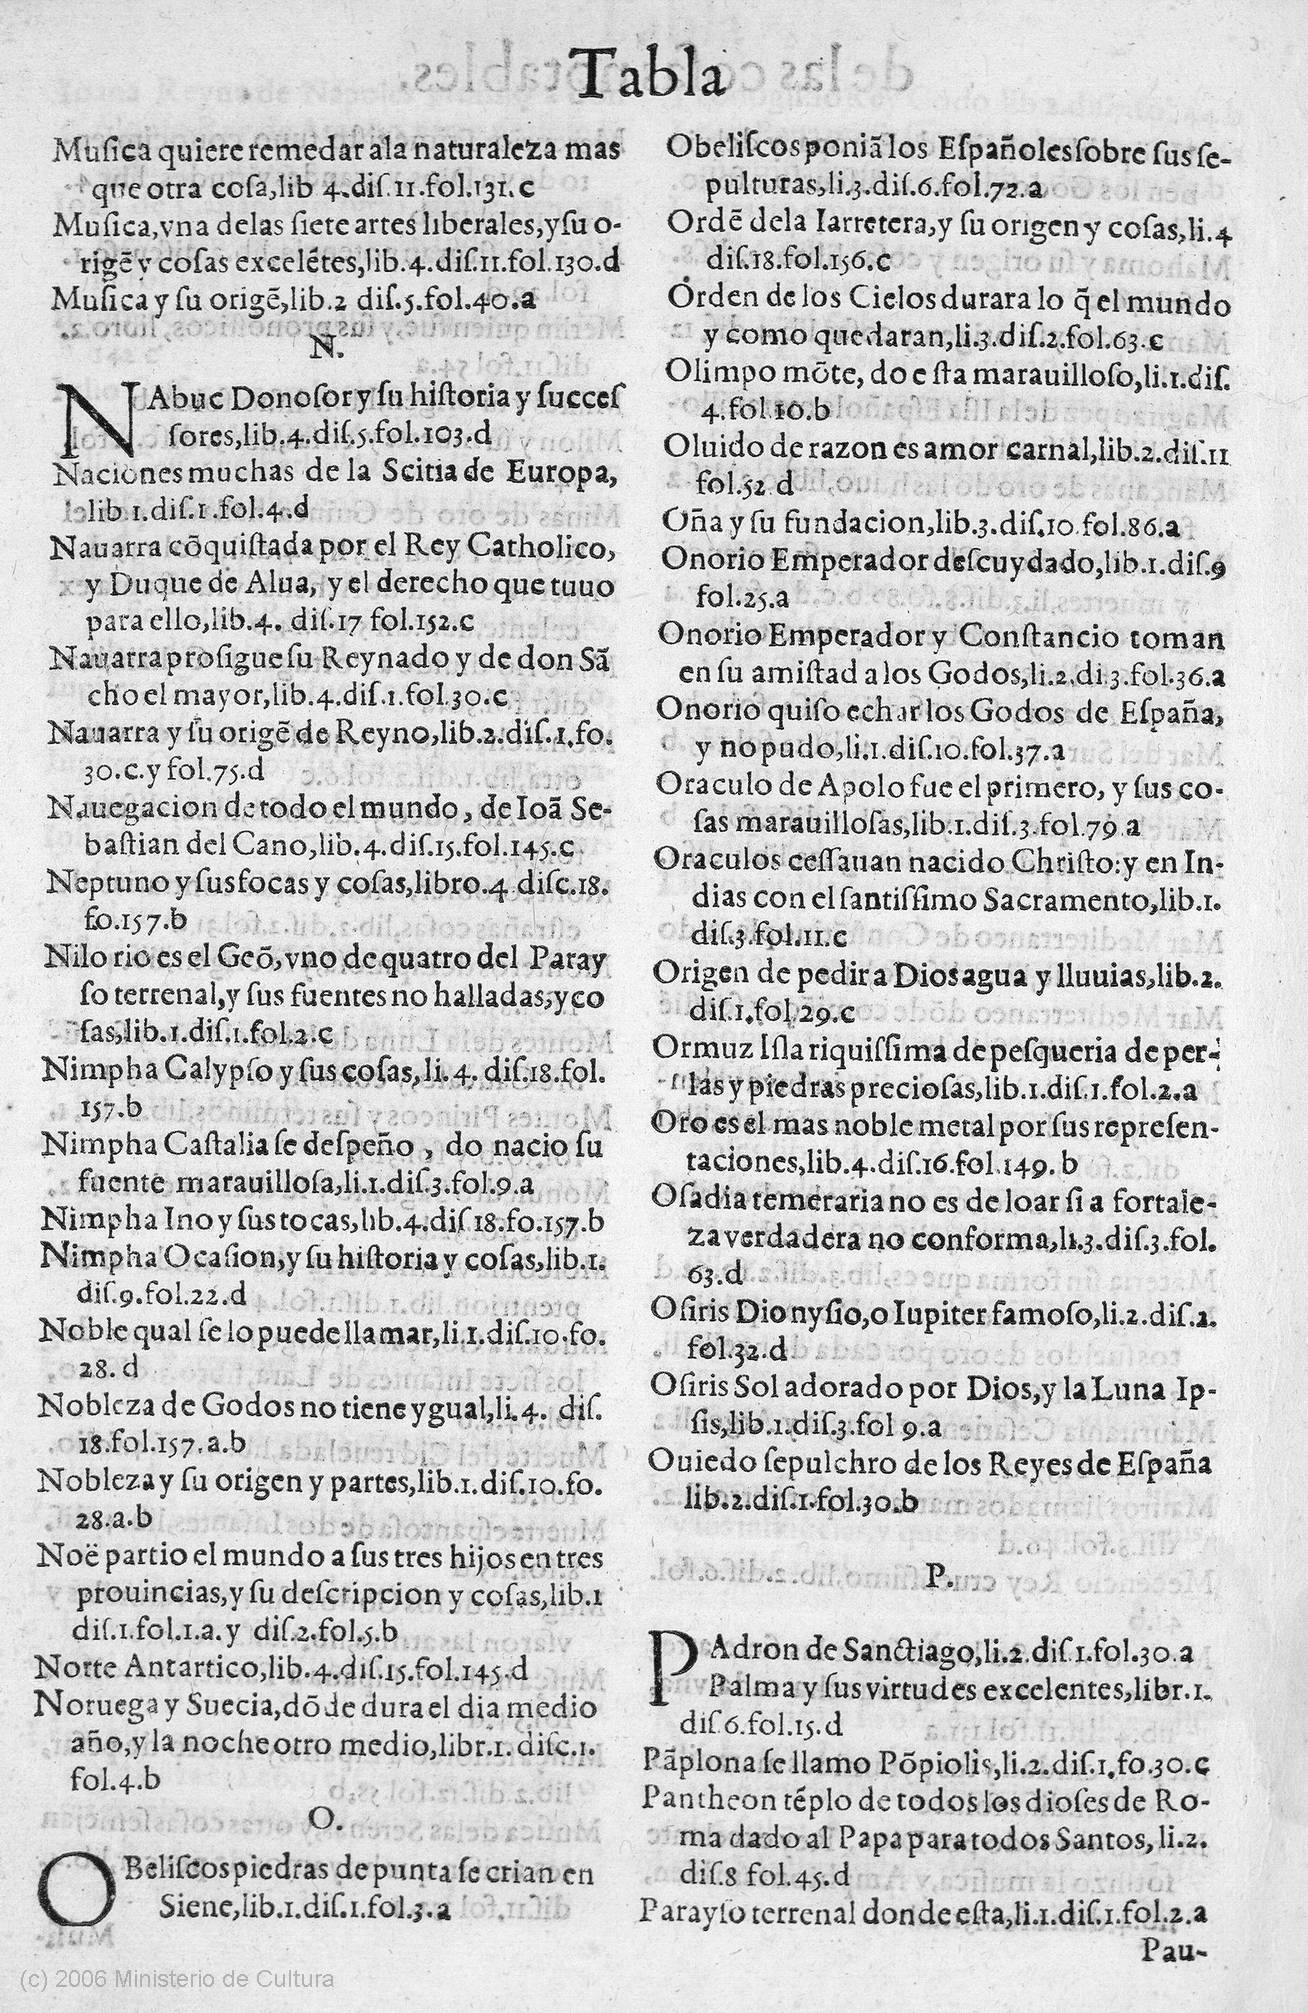 Tabla
Musica quiere remedar ala naturaleza mas
que otra cosa,lib 4.dis.11.fol.131.c
Musica,vna delas siete artes liberales,y su o-
rigẽ y cosas excelẽtes,lib.4.dis.11.fol.130.d
Musica y su origẽ,lib.2 dis.5.fol.40.a
N.
NAbuc Donosor y su historia y succes
sores,lib.4.dis.5.fol.103.d
Naciones muchas de la Scitia de Europa,
lib 1.dis.1.fol.4.d
Nauarra cõquistada por el Rey Catholico,
y Duque de Alua, y el derecho que tuuo
para ello,lib.4. dis.17 fol.152.c
Nauarra prosigue su Reynado y de don Sã
cho el mayor,lib.4.dis.1.fol.30.c
Nauarra y su origẽ de Reyno,lib.2.dis.1.fo.
30.c.y fol.75.d
Nauegacion de todo el mundo, de Ioã Se-
bastian del Cano,lib.4.dis.15.fol.145.c
Neptuno y sus focas y cosas,libro.4 disc.18.
fo.157.b
Nilo rio es el Geõ,vno de quatro del Paray
so terrenal,y sus fuentes no halladas,y co
sas,lib.1.dis.1.fol.2.c
Nimpha Calypso y sus cosas,li.4. dis.18.fol.
157.b
Nimpha Castalia se despeño , do nacio su
fuente marauillosa,li.1.dis.3.fol.9.a
Nimpha Ino y sus tocas,lib.4.dis 18.fo.157.b
Nimpha Ocasion,y su historia y cosas,lib.1.
dis.9.fol.22.d
Noble qual se lo puede llamar,li.1.dis.10.fo.
28. d
Nobleza de Godos no tiene ygual,li.4. dis.
18.fol.157.a.b
Nobleza y su origen y partes,lib.1.dis.10.fo.
28.a.b
Noë partio el mundo a sus tres hijos en tres
prouincias,y su descripcion y cosas,lib.1
dis.1.fol.1.a.y dis.2.fol.5.b
Norte Antartico,lib.4.dis.15.fol.145.d
Noruega y Suecia,dõde dura el dia medio
año,y la noche otro medio,libr.1. disc.1.
fol.4.b
O.
OBeliscos piedras de punta se crian en
Siene,lib.1.dis.1.fol.3.a
Obeliscos poniã los Españoles sobre sus se-
pulturas,li.3.dis.6.fol.72.a
Ordẽ dela Iarretera,y su origen y cosas,li.4
dis.18.fol.156.c
Orden de los Cielos durara lo q̃ el mundo
y como quedaran,li.3.dis.2.fol.63.c
Olimpo mõte, do esta marauilloso,li.1.dis.
4.fol 10.b
Oluido de razon es amor carnal,lib.2.dis.11
fol.52 d
Oña y su fundacion,lib.3.dis.10.fol.86.a
Onorio Emperador descuydado,lib.1.dis.9
fol.25.a
Onorio Emperador y Constancio toman
en su amistad a los Godos,li.2.di.3.fol.36.a
Onorio quiso echar los Godos de España,
y no pudo,li.1.dis.10.fol.37.a
Oraculo de Apolo fue el primero, y sus co-
sas marauillosas,lib.1.dis.3.fol.79.a
Oraculos cessauan nacido Christo:y en In-
dias con el santissimo Sacramento,lib.1.
dis.3.fol.11.c
Origen de pedir a Dios agua y lluuias,lib.2.
dis.1.fol.29.c
Ormuz Isla riquissima de pesqueria de per-
las y piedras preciosas,lib.1.dis.1.fol.2.a
Oro es el mas noble metal por sus represen-
taciones,lib.4.dis.16.fol.149. b
Osadia temeraria no es de loar si a fortale-
za verdadera no conforma,li.3.dis.3.fol.
63.d
Osiris Dionysio,o Iupiter famoso,li.2.dis.2.
fol.32.d
Osiris Sol adorado por Dios,y la Luna Ip-
sis,lib.1.dis.3.fol 9.a
Ouiedo sepulchro de los Reyes de España
lib.2.dis.1.fol.30.b
P.
PAdron de Sanctiago,li.2.dis.1.fol.30.a
Palma y sus virtudes excelentes,libr.1.
dis 6.fol.15.d
Pãplona se llamo Põpiolis,li.2.dis.1.fo.30.c
Pantheon tẽplo de todos los dioses de Ro-
ma dado al Papa para todos Santos, li.2.
dis.8 fol.45.d
Parayso terrenal donde esta,li.1.dis.1.fol.2.a
Pau-
(c) 2006 Ministerio de Cultura